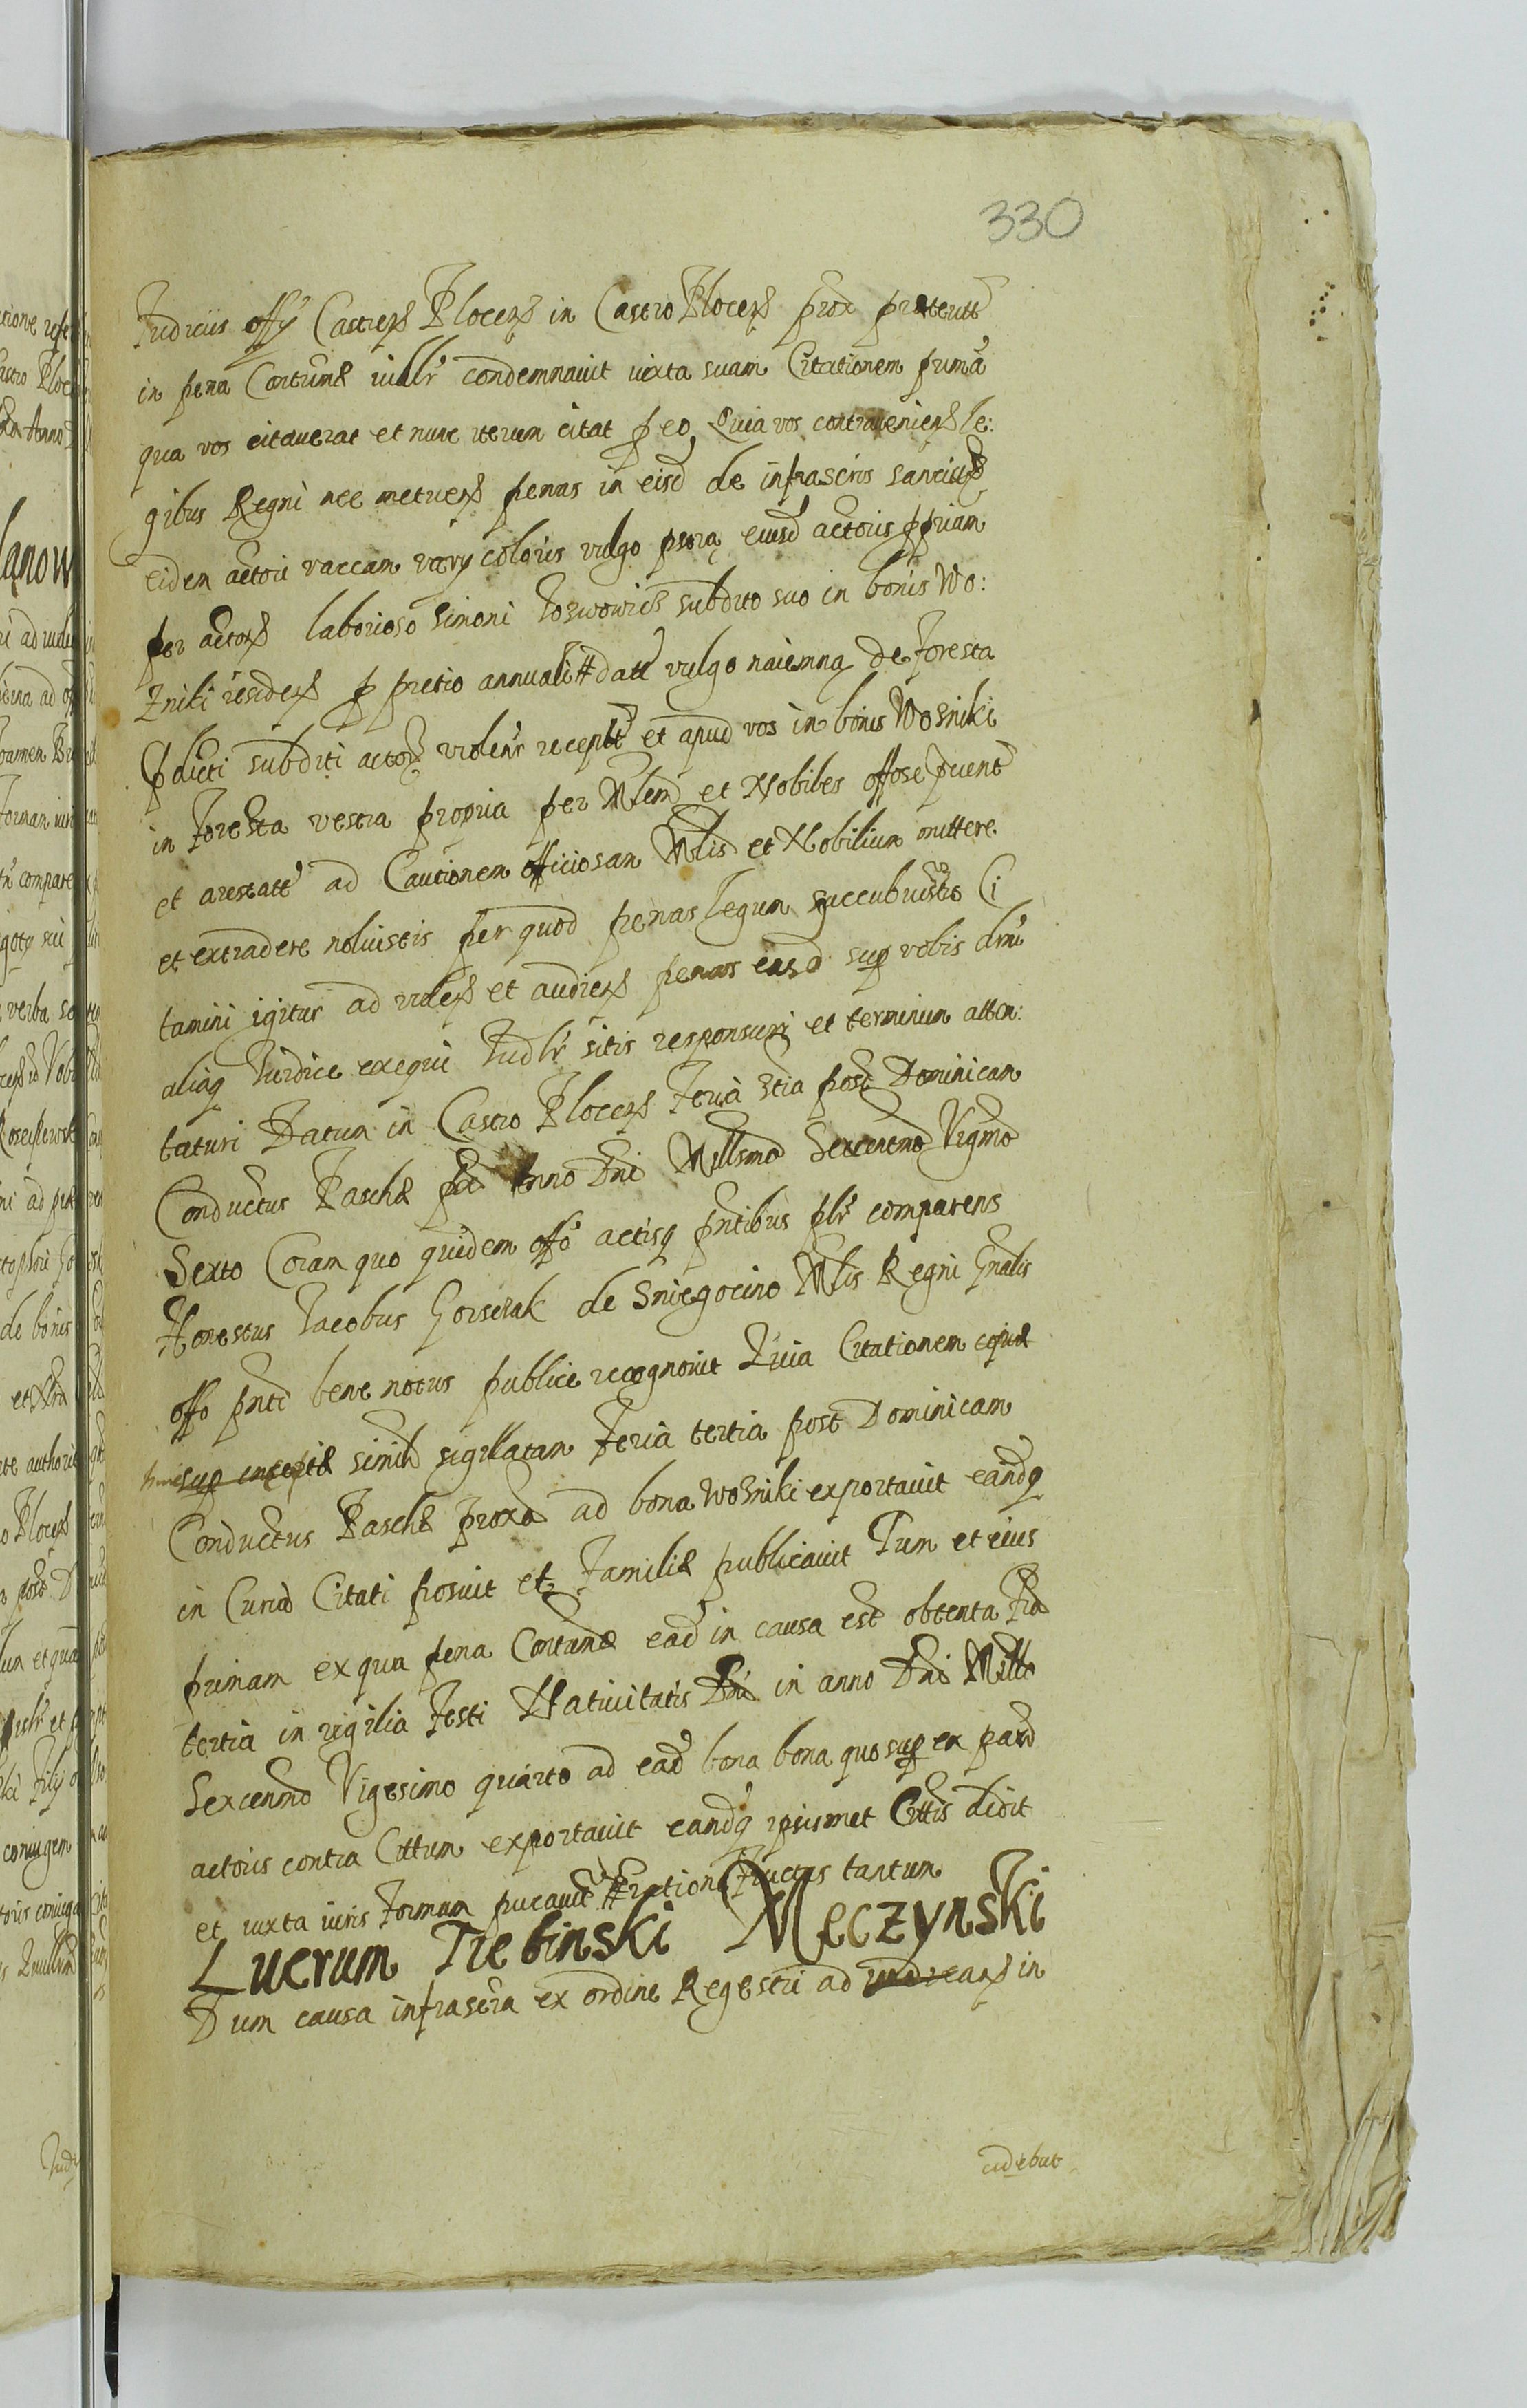 330
Judiciis offÿ Castren Plocen in Castro Plocen prox praeterite
in pena Contum iudlr condemnauit iuxta suam Citationem primā
qua vos citauerat et nunc iterum citat p eo Quia vos contraueniens le:
gibus Regni nec metuens penas in eisd de infrascris sancitas
eidem actori vaccam varÿ coloris vulgo psora eiusd actoris ppriam
per actorem laborioso Simoni subdito suo in bonis Wo:
zniki residen p pretio annuali # date vulgo naiemną de foresta
pdicti subditi actoris violenr recepte et apud vos in bonis Wozniki
in foresta vestra propria per Mlem et Nobiles offose
et arestate ad Cautionem officiosam Mlis et Nobilium mittere
et extradere noluistis per quod penas legum succubuistis Ci
tamini igitur ad viden et audien penas easd sup vobis
aliaq Juridice exequi Judlr sitis responsuri et terminum atten:
taturi Datum in Castro Plocen Feria 3tia post Dominicam
Conductus Paschae pta Anno Dni Millsmo Sexcentmo Vigmo
Sexto Coram quo quidem offo actisq pntibus plr comparens
Honestus Jacobus Gorszak de Sniegocino Mlis Regni Gnalis
offo pnti bene notus publice recognouit Quia Citationem copiae
sup insertae simile sigillatam Feria tertia post Dominicam
Conductus Paschae proxa ad bona Wozniki exportauit eandq
in Curia Citati posuit et Familiae publicauit Tum et eius
primam ex qua pena Contumae ead in causa est obtenta Fia
tertia in vigilia Festi Natiuitatis Dni in anno Dni Millo
Sexcenmo Vigesimo quarto ad ead bona bona quo sup ex parte
actoris contra Cittum exportauit eandq ipsismet Cittis dedit
et iuxta iuris formam # ratione Fructus tantum
Lucrum Trebinski Męczynski
Dum causa infrascra ex ordine Regestri ad in
cidebat